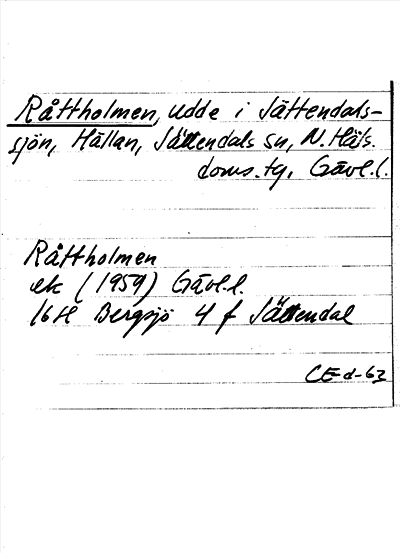 Råttholmen, udde i Jättendals-
sjön, Hällan, Jättendals sn, N. Häls.
doms. tg, Gävl. l.
Råttholmen
ek (1959) Gävl. l.
16H Bergsjö 4 f Jättendal
CE d-63